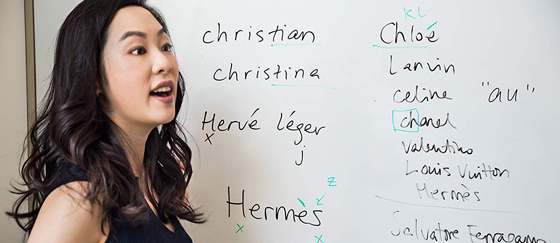 christian
christina
Hervé léger
x
j
z
Hermès
x x
KL
Chloé
Lanvin
celine "au"
chanel
valentino
Louis Vuitton
Hermès
Salvatore Ferragam